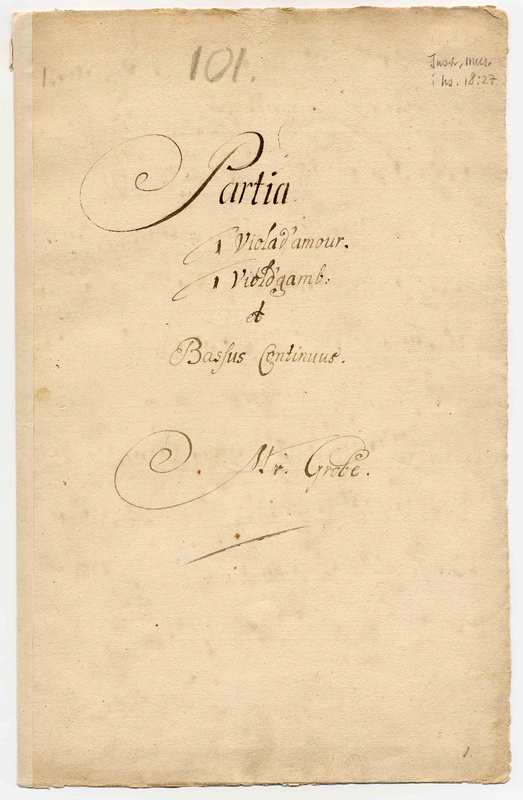 1.
101.
Instr. mus.
i hs. 18:27
Partia
1 Viola d'amour.
1 Viol d'gamb:
et
Bassus Continuus.
Mr. Grobe.
1.